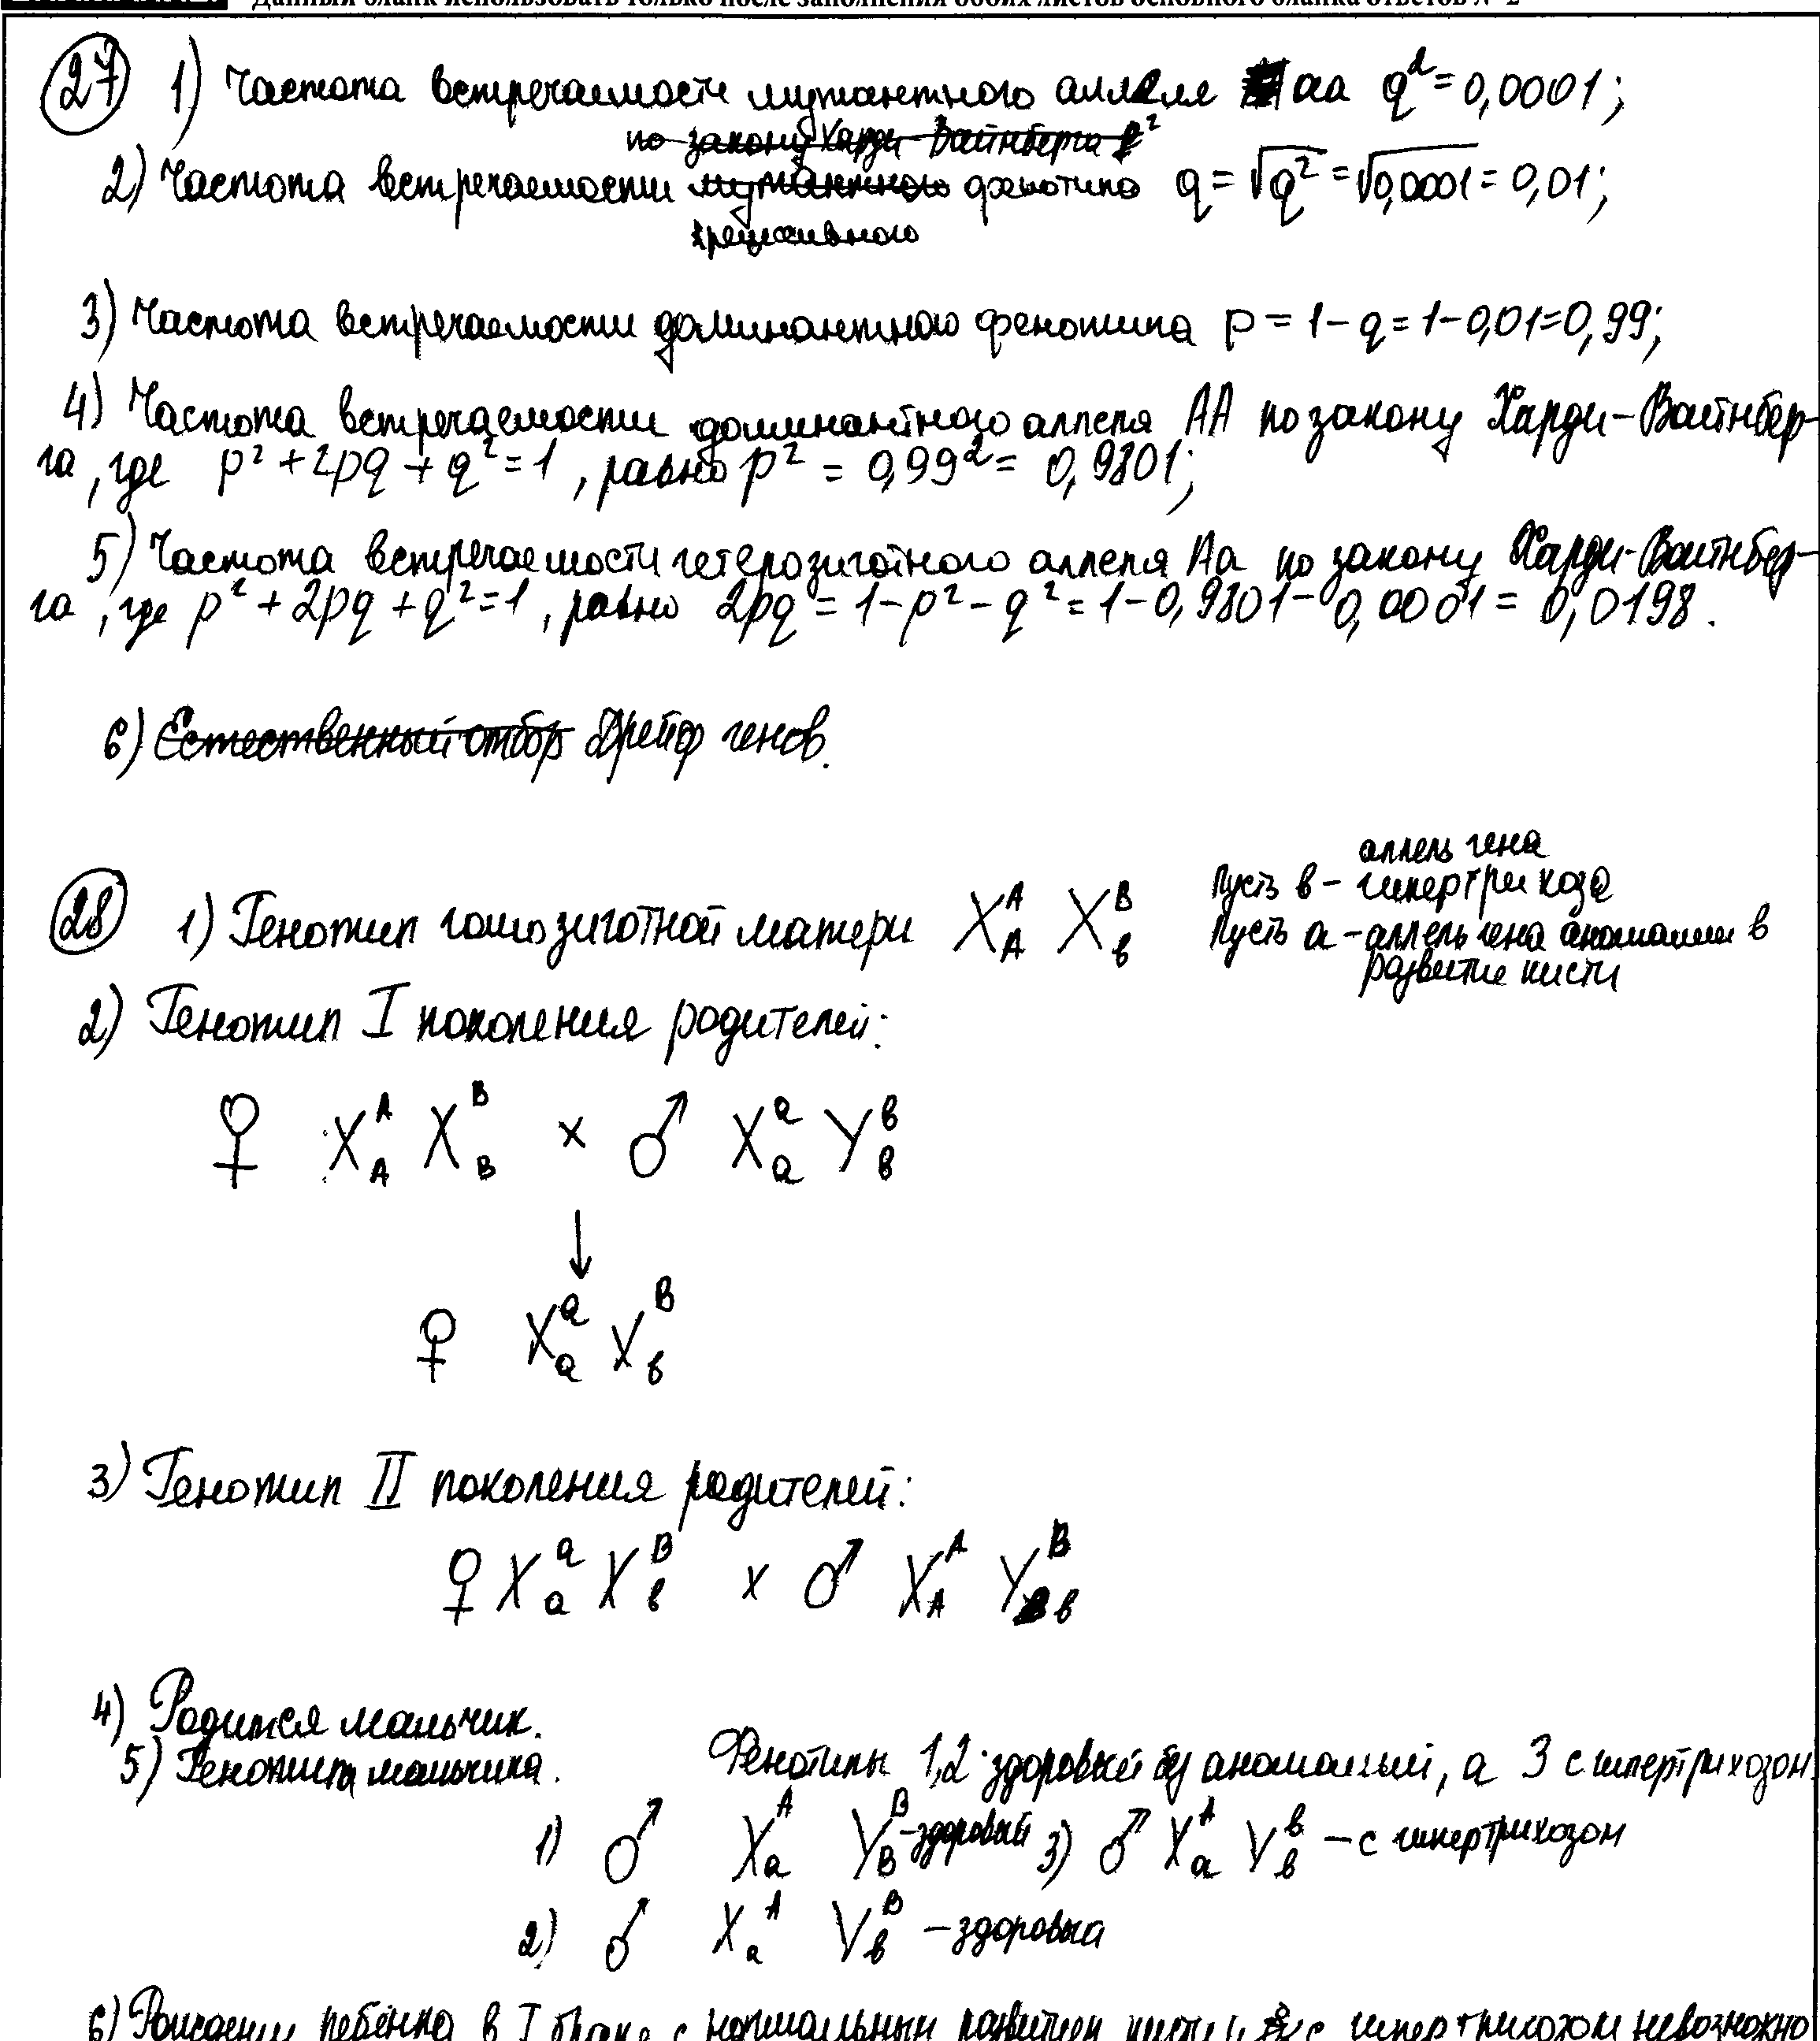 Данный бланк использовать только после заполнения обоих листов основного бланка ответов № 2
27 1) Частота встречаемости мутантного аллеля аа q² = 0,0001;
по закону Харди-Вайнберга
2) Частота встречаемости мутантного фенотипа q = √q² = √0,0001 = 0,01;
рецессивного
3) Частота встречаемости доминантного фенотипа p = 1 - q = 1 - 0,01 = 0,99;
4) Частота встречаемости доминантного аллеля АА по закону Харди-Вайнбер-
га, где p² + 2pq + q² = 1, равно p² = 0,99² = 0,9801;
5) Частота встречаемости гетерозиготного аллеля Аа по закону Харди-Вайнбер-
га, где p² + 2pq + q² = 1, равно 2pq = 1 - p² - q² = 1 - 0,9801 - 0,0001 = 0,0198.
6) Естественный отбор Дрейф генов.
аллель гена
Пусть в - гипертрихоза
28 1) Генотип гомозиготной матери X^A_A X^B_в
Пусть а - аллель гена аномалии в
развитие кисти
2) Генотип I поколения родителей:
♀ X^A_A X^B_B × ♂ X^a_a Y^в_в
↓
♀ X^a_a X^B_в
3) Генотип II поколения родителей:
♀ X^a_a X^B_в × ♂ X^A_A Y^B_в
4) Родится мальчик.
5) Генотипа мальчика. Фенотипы 1,2 здоровый без аномалий, а 3 с гипертрихозом.
1) ♂ X^A_a Y^B_B - здоровый 3) ♂ X^A_a Y^в_в - с гипертрихозом
2) ♂ X^A_a Y^B_в - здоровый
6) Рождение ребёнка в I браке с нормальным развитием кисти и с гипертрихозом невозможно